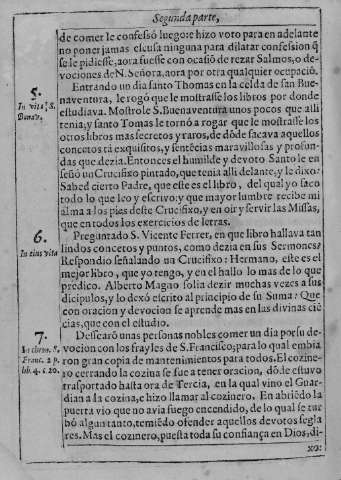 Segunda parte,
de comer le confessó luego: e hizo voto para en adelante
no poner jamas escusa ninguna para dilatar confession q̃
se le pidiesse, aora fuesse con ocasiõ de rezar Salmos, o de-
vociones de N. Señora, aora por otra qualquier ocupaciõ.
5.
In vita S.
Bonav.
Entrando un dia santo Thomas en la celda de san Bue-
naventura, le rogó que le mostrasse los libros por donde
estudiava. Mostrole S. Buenaventura unos pocos que alli
tenia; y santo Tomas le tornó a rogar que le mostrasse los
otros libros mas secretos y raros, de dõde sacava aquellos
concetos tã exquisitos, y sentẽcias maravillosas y profun-
das que dezia. Entonces el humilde y devoto Santo le en-
señó un Crucifixo pintado, que tenia alli delante, y le dixo:
Sabed cierto Padre, que este es el libro, del qual yo saco
todo lo que leo y escrivo: y que mayor lumbre recibe mi
alma a los pies deste Crucifixo, y en oir y servir las Missas,
que en todos los exercicios de letras.
6.
In eius vita
Preguntado S. Vicente Ferrer, en que libro hallava tan
lindos concetos y puntos, como dezia en sus Sermones?
Respondio señalando un Crucifixo: Hermano, este es el
mejor libro, que yo tengo, y en el hallo lo mas de lo que
predico. Alberto Magno solia dezir muchas vezes a sus
dicipulos, y lo dexó escrito al principio de su Suma: Que
con oracion y devocion se aprende mas en las divinas ciẽ
cias, que con el estudio.
7.
In chron.
Franc. 2 p.
lib. 4. c. 20.
Dessearõ unas personas nobles comer un dia por su de-
vocion con los frayles de S. Francisco; para lo qual embia
ron gran copia de mantenimientos para todos. El cozine-
ro cerrando la cozina se fue a tener oracion, dõde estuvo
trasportado hasta ora de Tercia, en la qual vino el Guar-
dian a la cozina, e hizo llamar al cozinero. En abriẽdo la
puerta vio que no avia fuego encendido, de lo qual se tur
bó algun tanto, temiẽdo ofender aquellos devotos segla
res. Mas el cozinero, puesta toda su confiança en Dios, di-
xo: